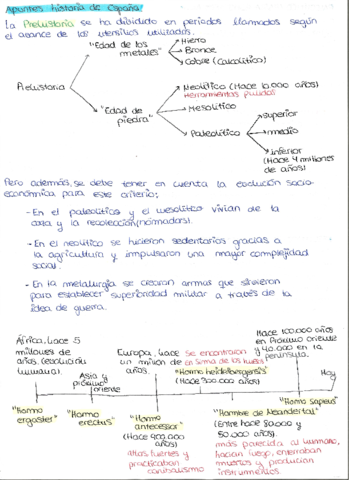 Apuntes historia de España
La Prehistoria se ha dividido en periodos llamados según
el avance de los utensilios utilizados.
"Edad de los
metales"
Hierro
Bronce
Cobre (Calcolítico)
Prehistoria
"Edad de
piedra"
Neolítico (Hace 10.000 años)
Herramientas pulidas
Mesolítico
Paleolítico
superior
medio
inferior
(Hace 4 millones
de años)
Pero además, se debe tener en cuenta la evolución socio-
económica para este criterio;
- En el paleolítico y el mesolítico vivían de la
caza y la recolección (nómadas).
- En el neolítico se hicieron sedentarios gracias a
la agricultura y impulsaron una mayor complejidad
social.
- En la metalurgia se crearon armas que sirvieron
para establecer superioridad militar a través de la
idea de guerra.
África, hace 5
millones de
años. (evolución
humana).
Asia y
próximo
oriente
Europa, hace
un millón de
años.
se encontraron
en Sima de los huesos
"Homo heidelbergensis"
(Hace 300.000 años)
Hace 100.000 años
en Próximo oriente
y 40.000 en la
península.
Hoy
"Homo
ergaster"
"Homo
erectus"
"Homo
antecessor"
(Hace 900.000
años)
Más fuertes y
practicaban
canibalismo
"Hombre de Neandertal"
(Entre hace 80.000 y
50.000 años).
más parecido al humano,
hacían fuego, enterraban
muertos y producían
instrumentos
"Homo sapiens"